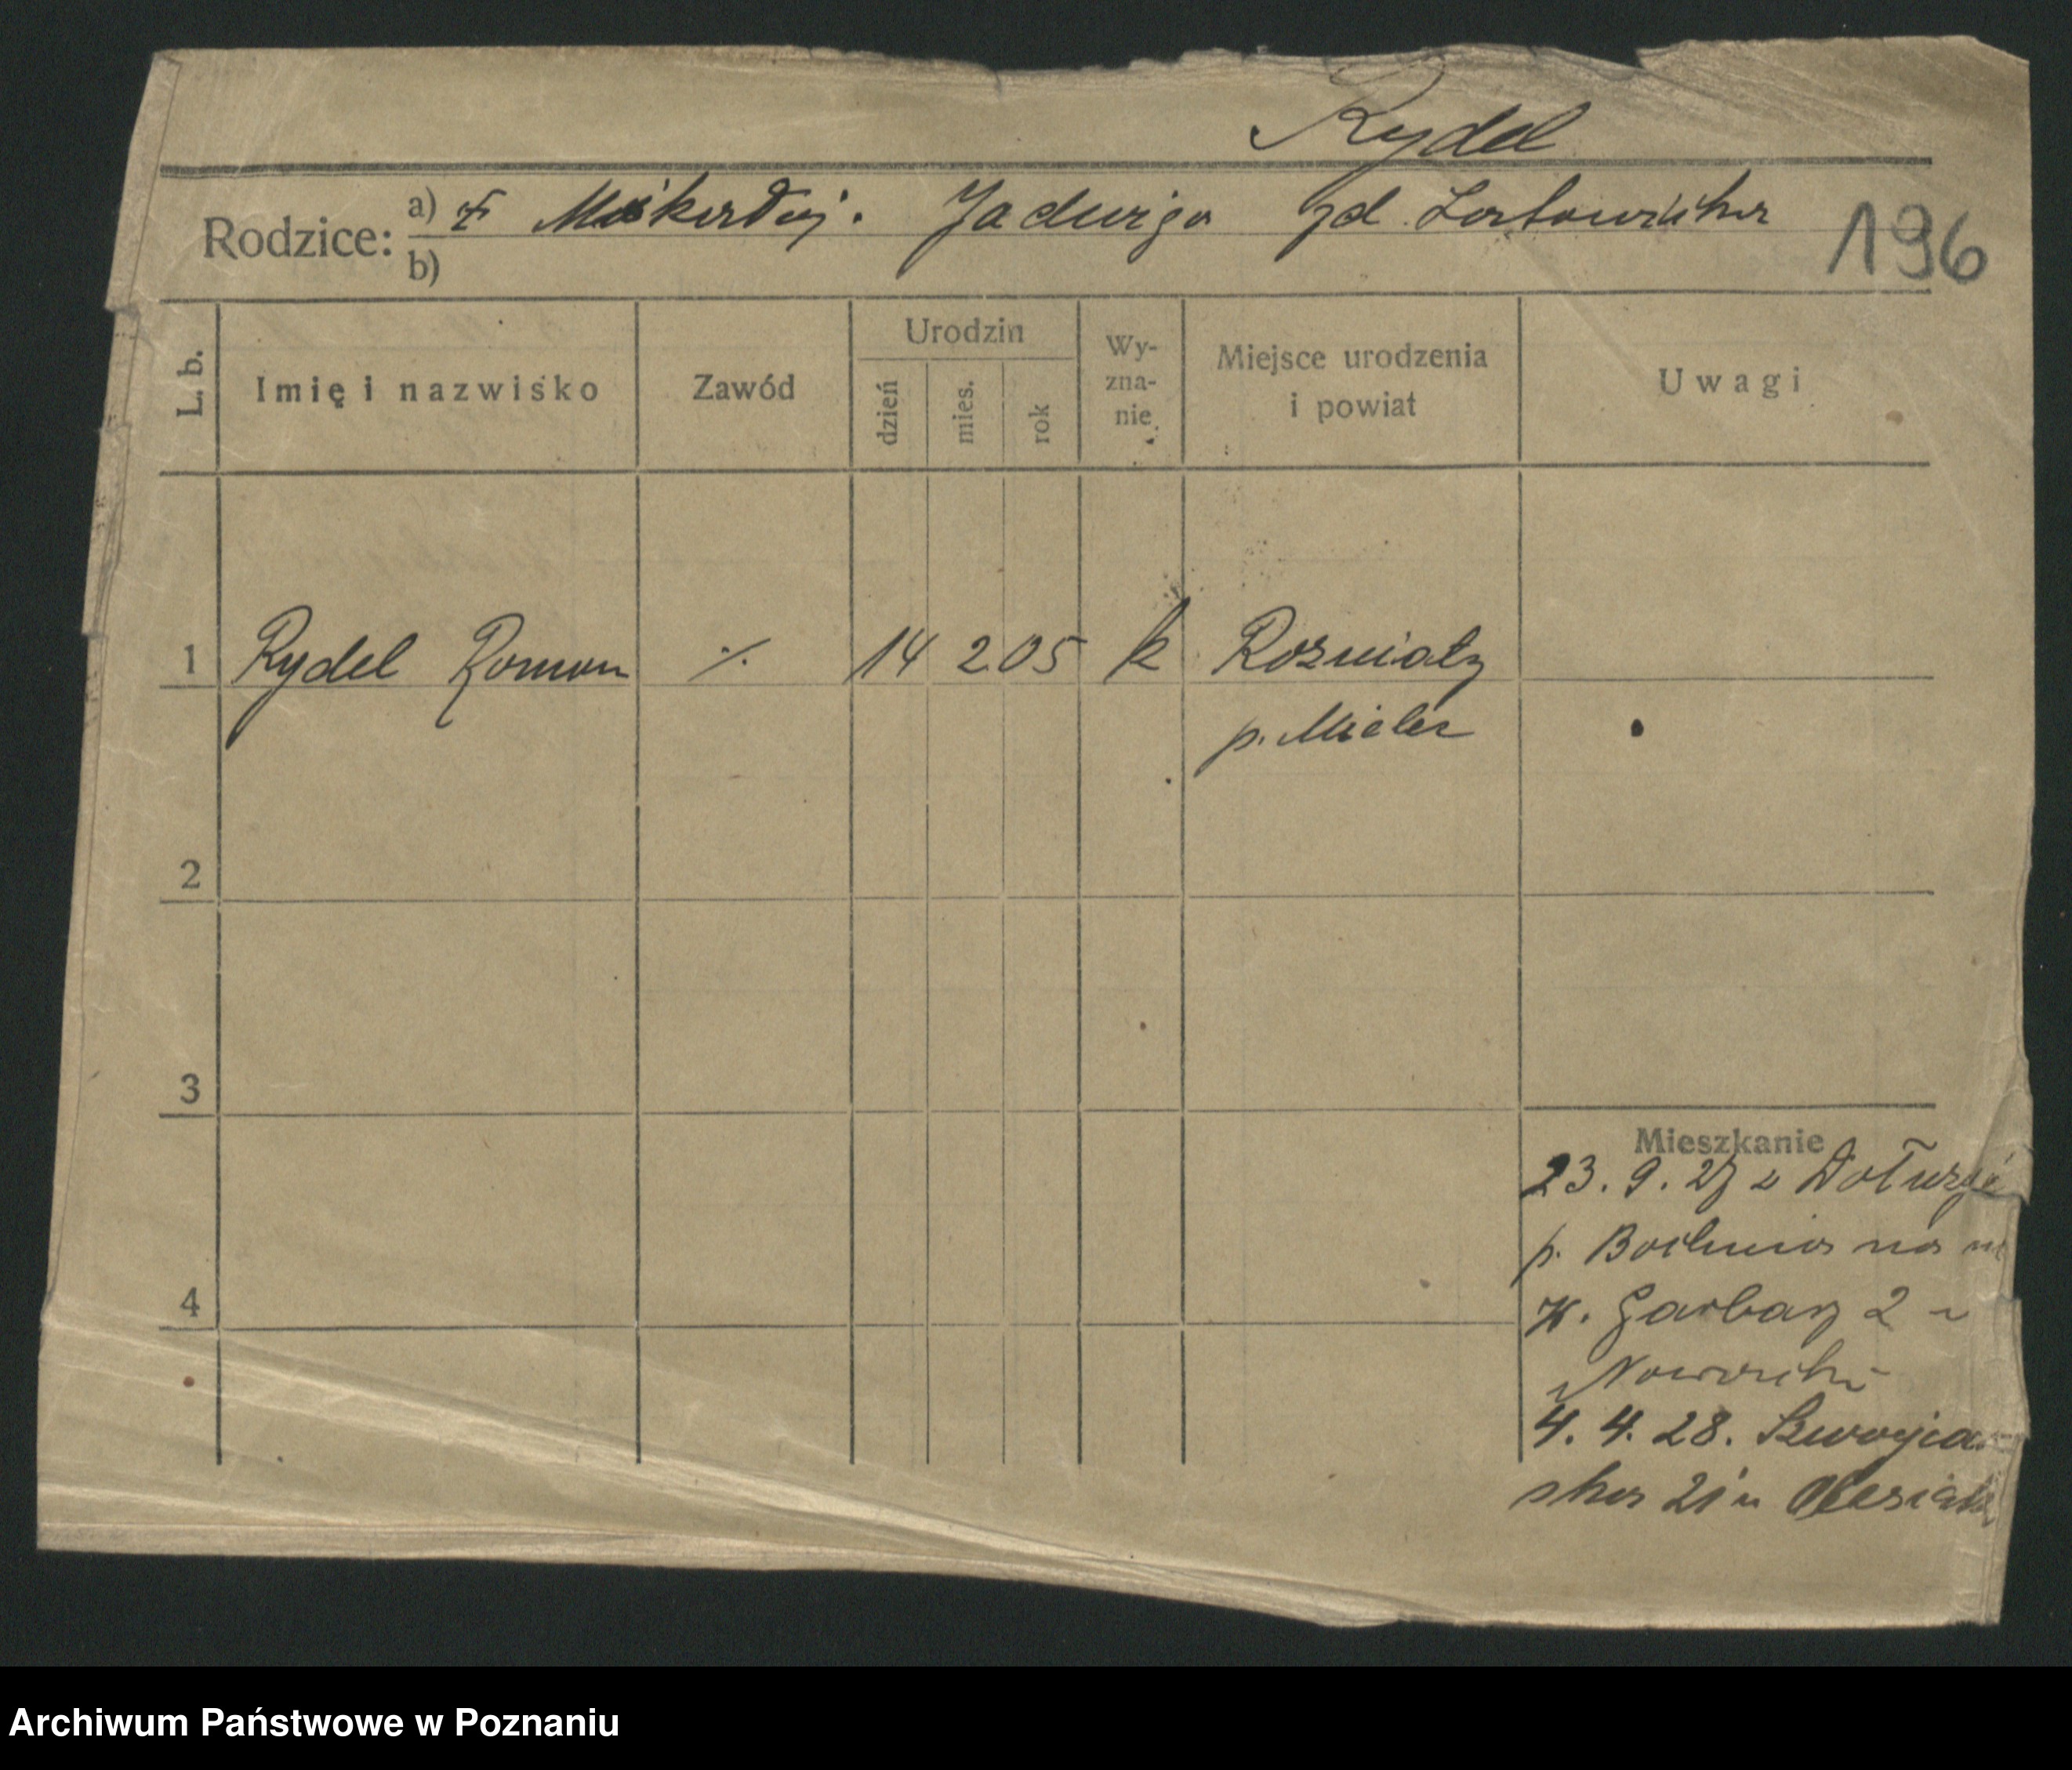 Rydel
Rodzice: a) Jadwiga zd
196
b)
L. b. Imię i nazwisko Zawód Urodzin dzień mies. rok Wy-zna-nie Miejsce urodzenia i powiat Uwagi
1 Rydel Roman ⁒ 14 2 05 k Rozniaty
p. Mielec
2
3
Mieszkanie
23. 9. 27 z
p. Bochnia na
4
W. Garbary 2 u
4. 4. 28.
ska 21 u
Archiwum Państwowe w Poznaniu